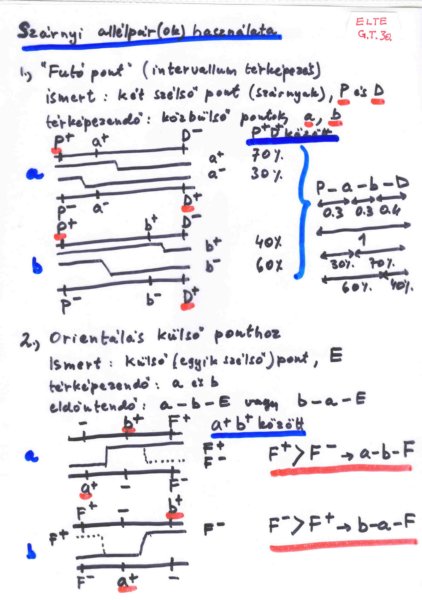 Szárnyi allélpár(ok) használata
ELTE
G.T. 3a
1., "Futó pont" (intervallum térképezés)
ismert : két szélső pont (szárnyak), P és D
térképezendő : közbülső pontok, a, b
P⁺D⁺ között
P⁺ a⁺ D⁻
a
a⁺ 70%
a⁻ 30%
P⁻ a⁻ D⁺
P⁺ b⁺ D⁻
b
b⁺ 40%
b⁻ 60%
P⁻ b⁻ D⁺
P - a - b - D
0.3 0.3 0.4
1
30% 70%
60% 40%
2., Orientálás külső ponthoz
Ismert : Külső (egyik szélső) pont, E
térképezendő : a és b
eldöntendő : a-b-E vagy b-a-E
a⁺b⁺ között
- b⁺ F⁺
a
F⁺
F⁻
a⁺ - F⁻
F⁺ > F⁻ → a-b-F
F⁺ - b⁺
F⁺
b
F⁻
F⁻ a⁺ -
F⁻ > F⁺ → b-a-F